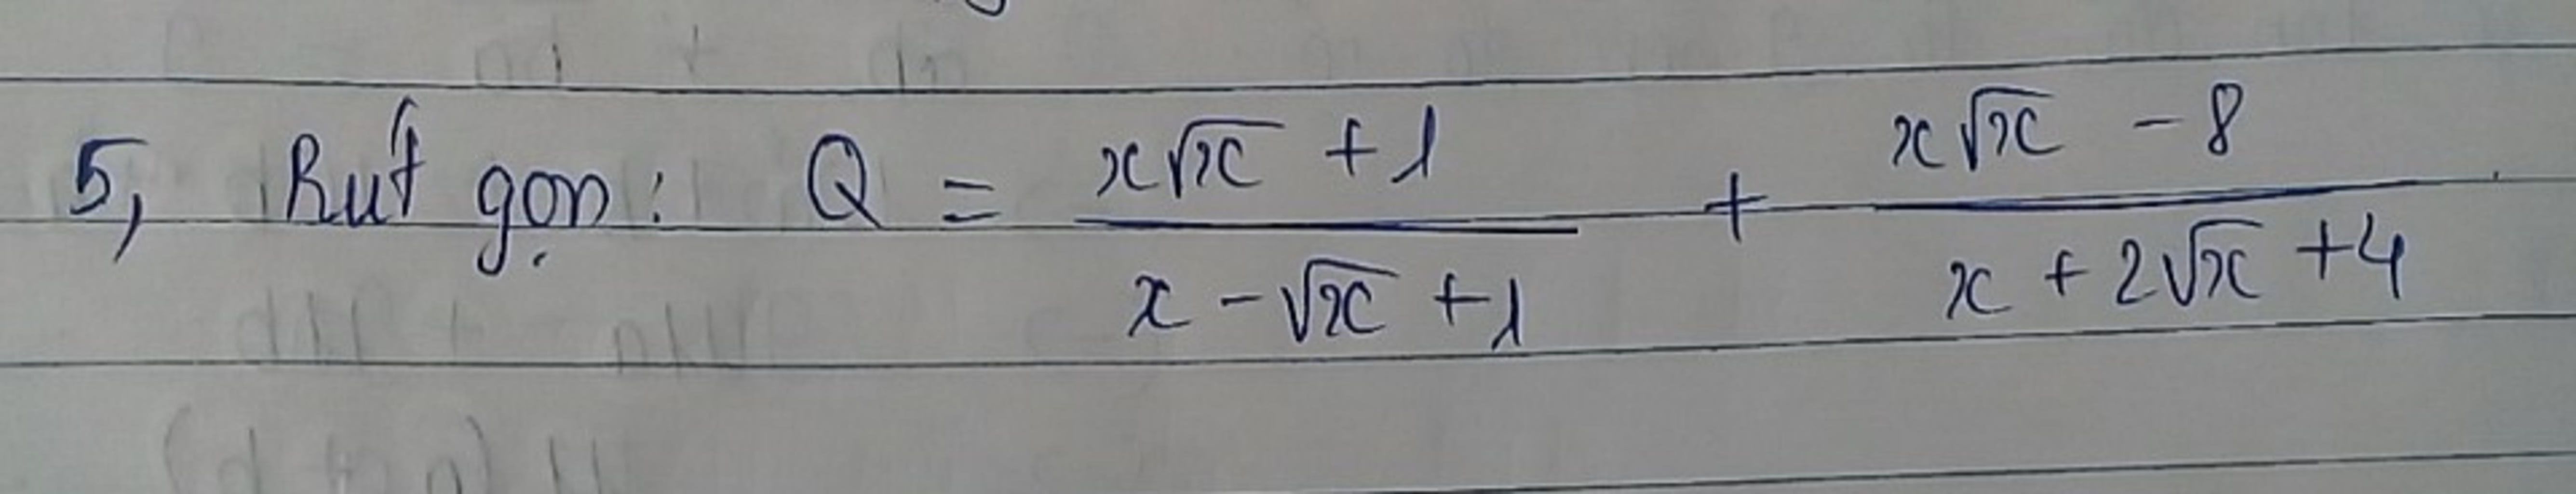 5, Rút gọn: Q = \frac{x\sqrt{x} + 1}{x - \sqrt{x} + 1} + \frac{x\sqrt{x} - 8}{x + 2\sqrt{x} + 4}